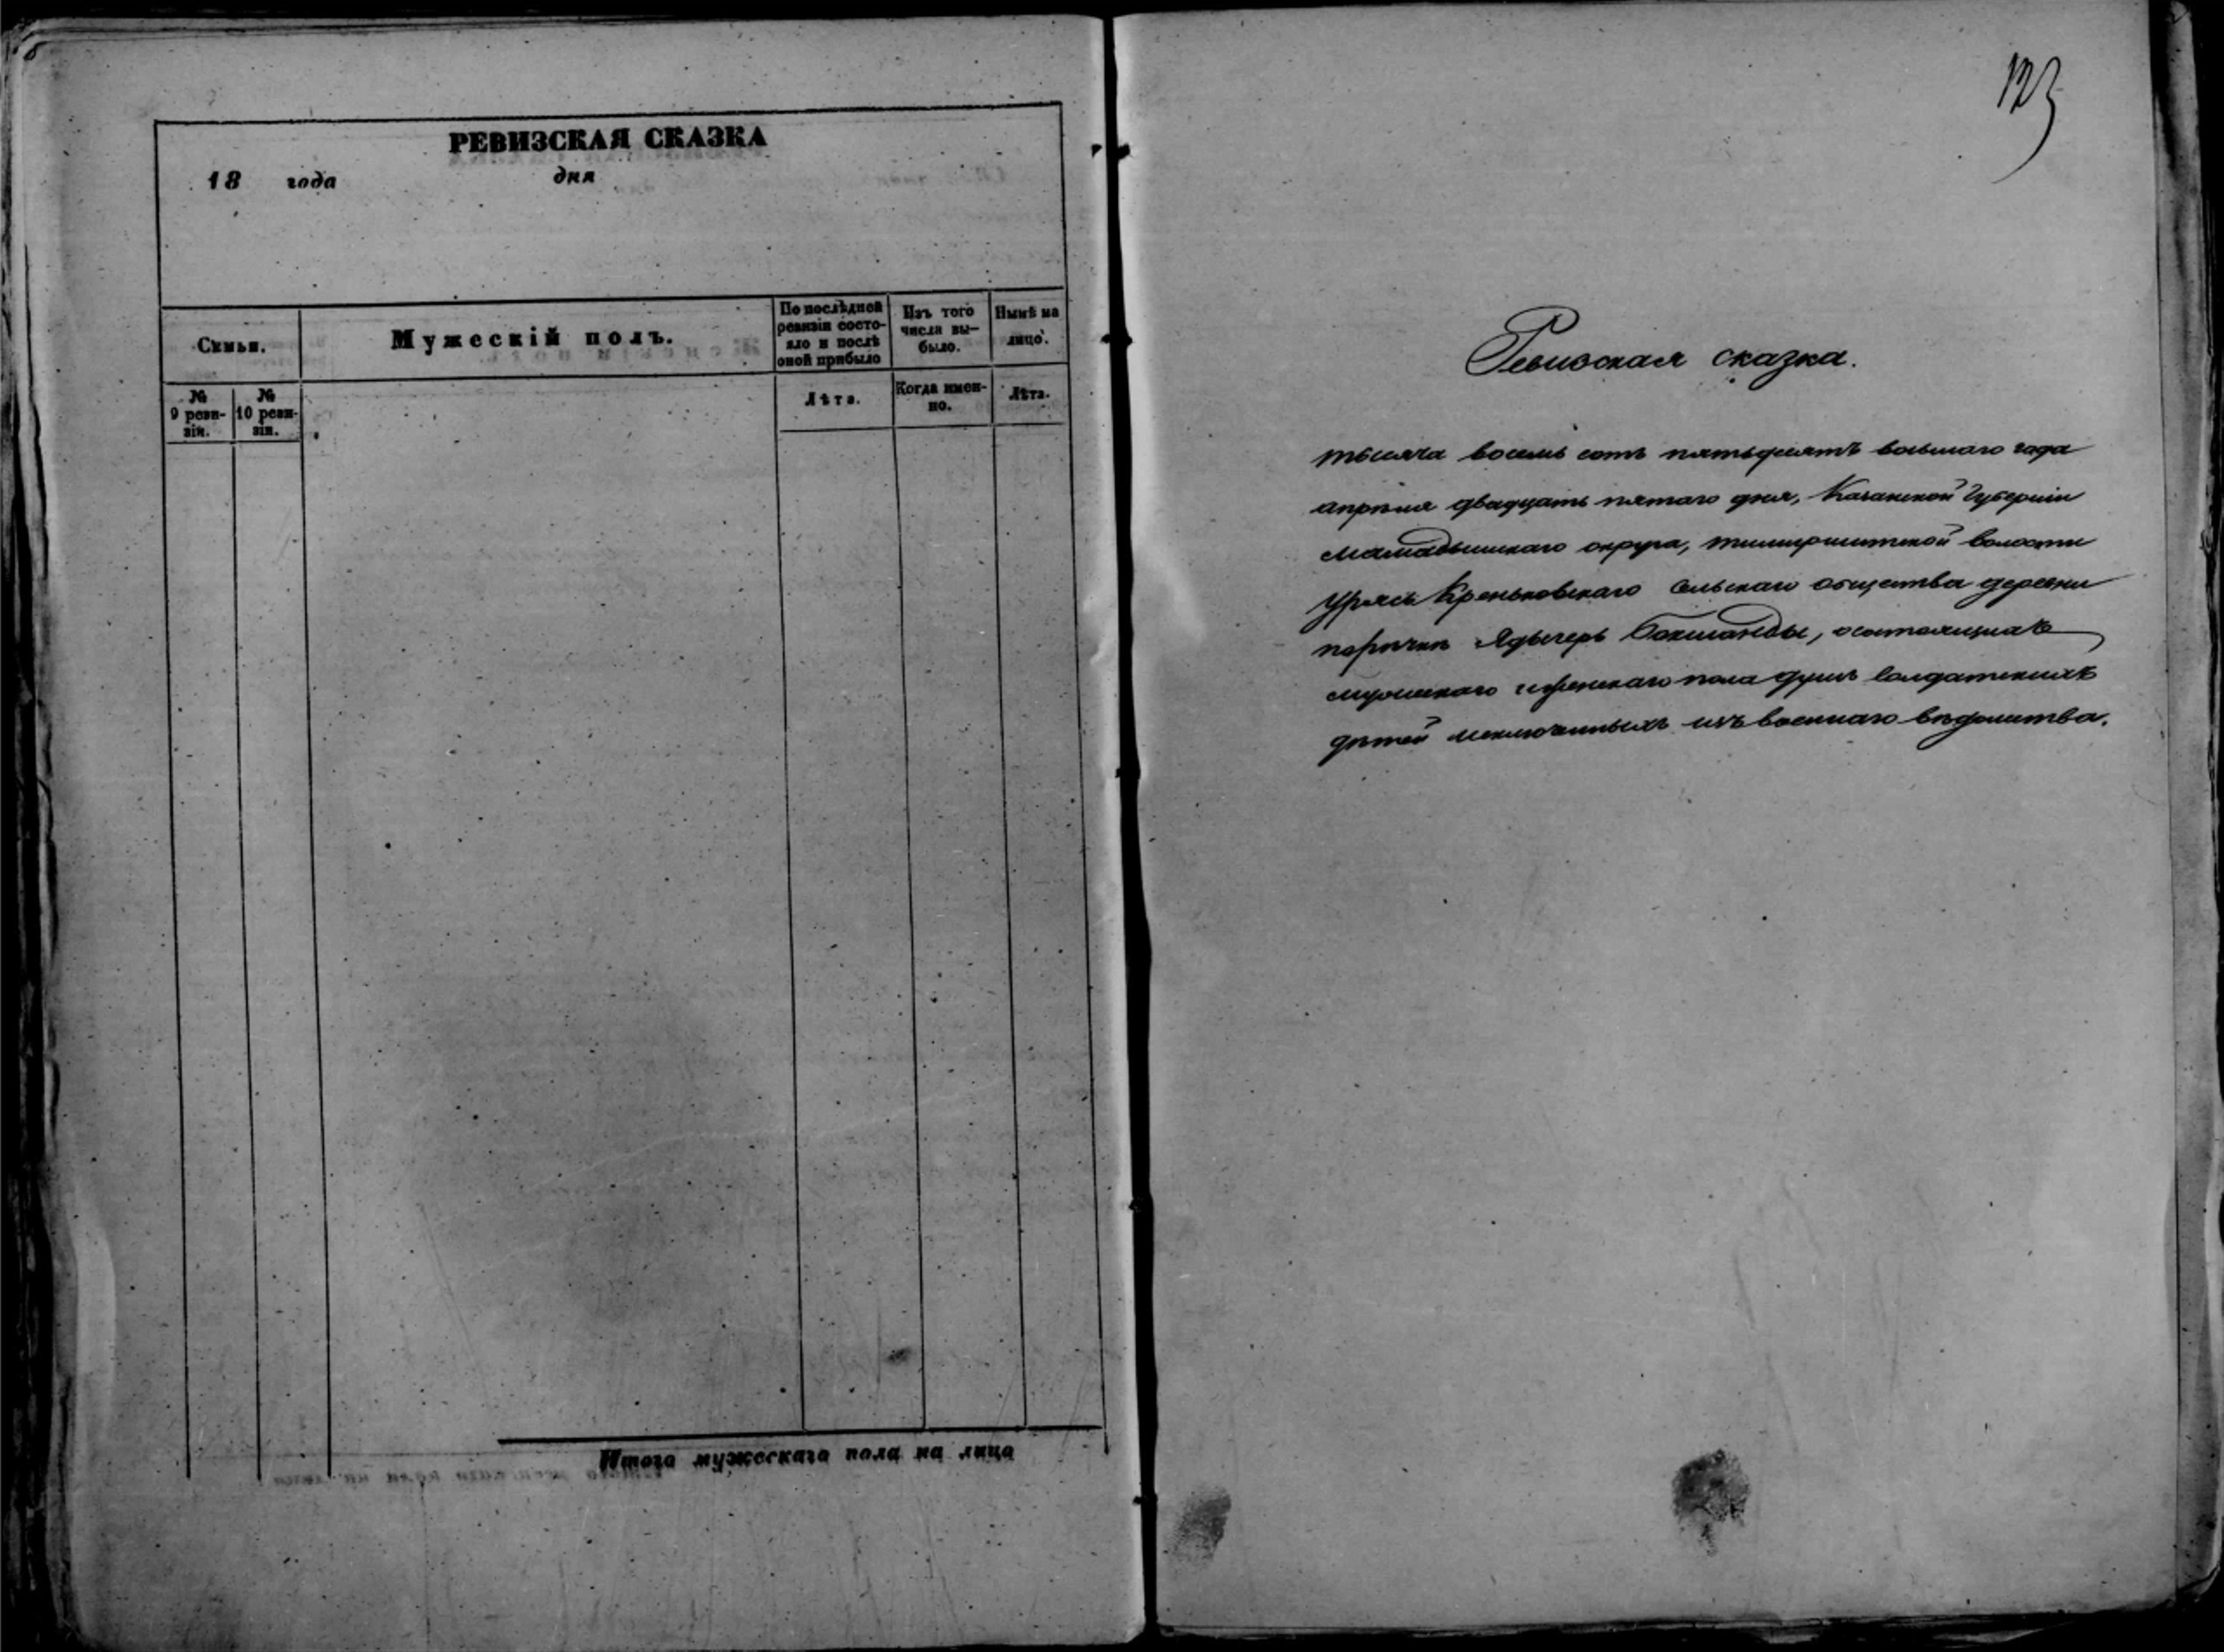 РЕВИЗСКАЯ СКАЗКА
18 года дня
Семьи.
Мужескій полъ.
По послѣдней ревизіи состо-
яло и послѣ
оной прибыло
Изъ того
числа вы-
было.
Нынѣ на
лицо.
№
9 реви-
зіи.
№
10 реви-
зіи.
Лѣта.
Когда имен-
но.
Лѣта.
Итого мужескаго пола на лицо
123
Ревизская сказка.
тысяча восемь сотъ пятьдесятъ восьмаго года
апрѣля двадцать пятаго дня, Казанской Губерніи
Мамадышскаго округа, волости
Урясь Креньковскаго сельскаго общества деревни
Ядыгерь, о состоящихъ
мужескаго и женскаго пола душъ солдатскихъ
дѣтей исключенныхъ изъ военнаго вѣдомства.